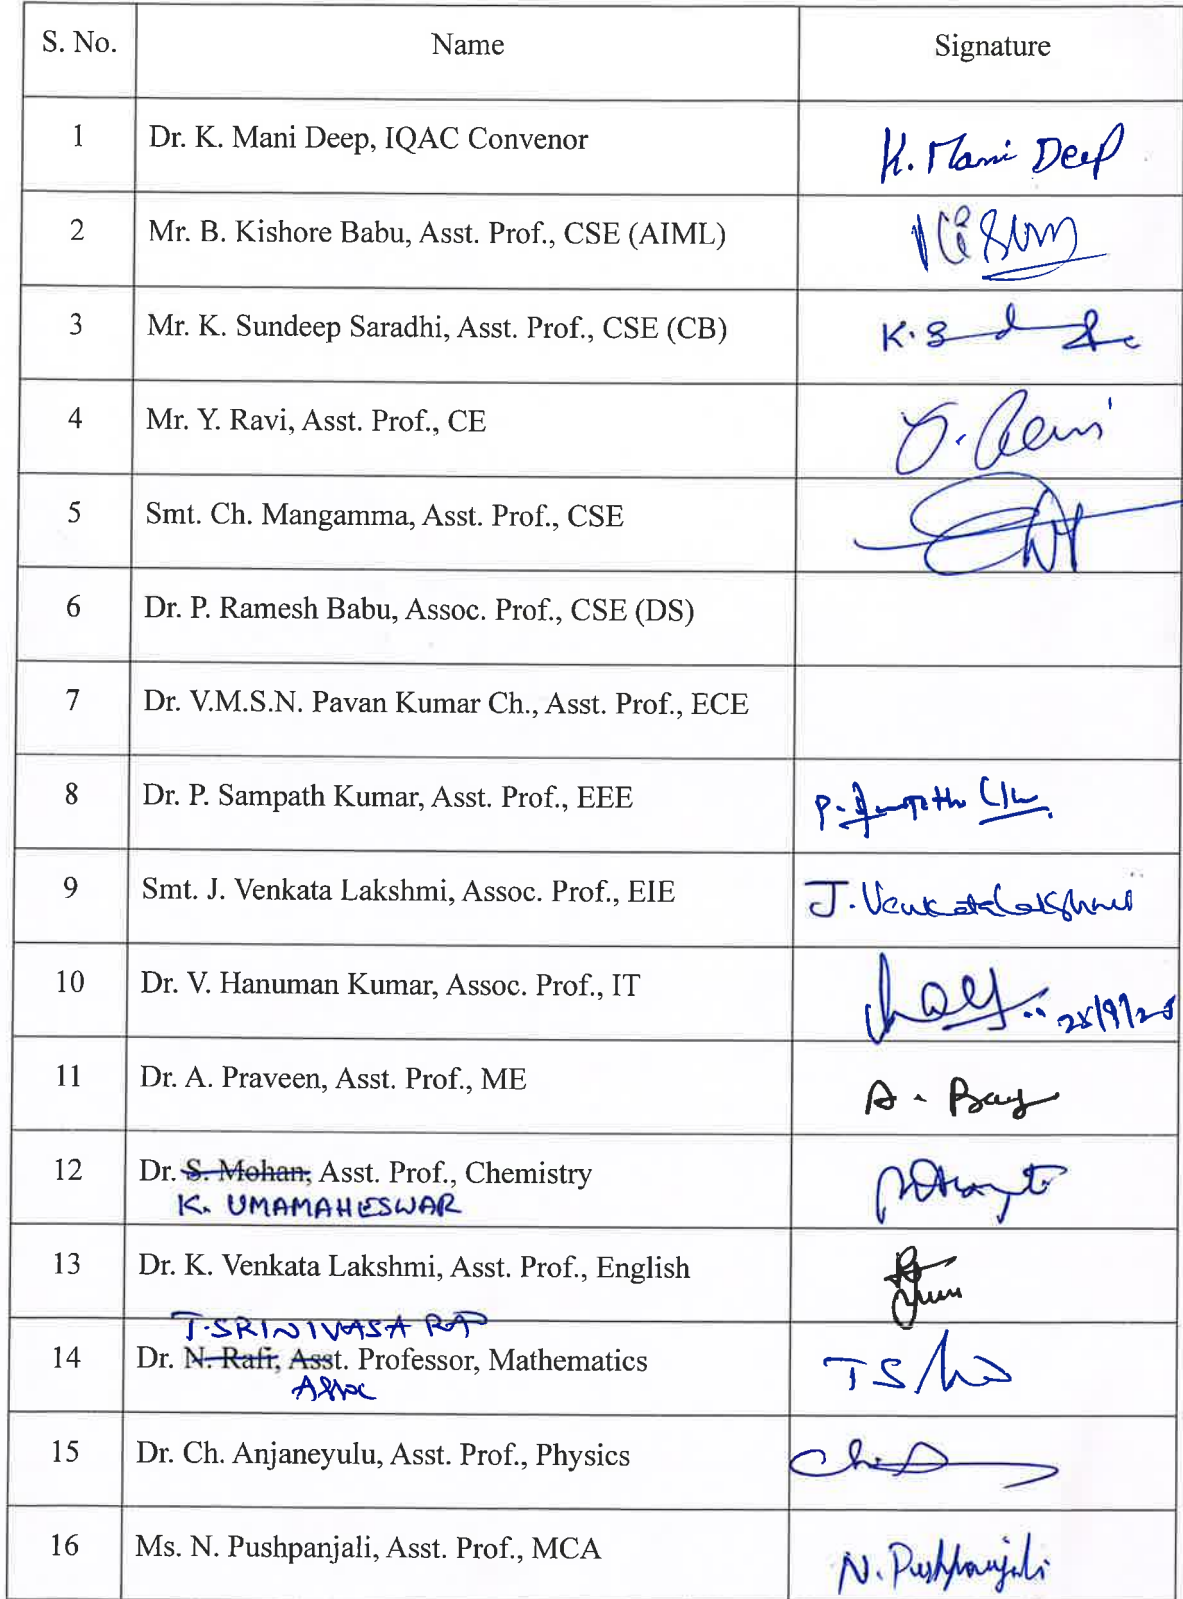 S. No. Name Signature
1 Dr. K. Mani Deep, IQAC Convenor K. Mani Deep
2 Mr. B. Kishore Babu, Asst. Prof., CSE (AIML)
3 Mr. K. Sundeep Saradhi, Asst. Prof., CSE (CB)
4 Mr. Y. Ravi, Asst. Prof., CE Y. Ravi
5 Smt. Ch. Mangamma, Asst. Prof., CSE
6 Dr. P. Ramesh Babu, Assoc. Prof., CSE (DS)
7 Dr. V.M.S.N. Pavan Kumar Ch., Asst. Prof., ECE
8 Dr. P. Sampath Kumar, Asst. Prof., EEE
9 Smt. J. Venkata Lakshmi, Assoc. Prof., EIE J. Venkatalakshmi
10 Dr. V. Hanuman Kumar, Assoc. Prof., IT
11 Dr. A. Praveen, Asst. Prof., ME
12 Dr. S. Mohan, Asst. Prof., Chemistry
K. UMAMAHESWAR
13 Dr. K. Venkata Lakshmi, Asst. Prof., English
T. SRINIVASA RAO
14 Dr. N. Rafi, Asst. Professor, Mathematics
Assoc
15 Dr. Ch. Anjaneyulu, Asst. Prof., Physics
16 Ms. N. Pushpanjali, Asst. Prof., MCA N. Pushpanjali